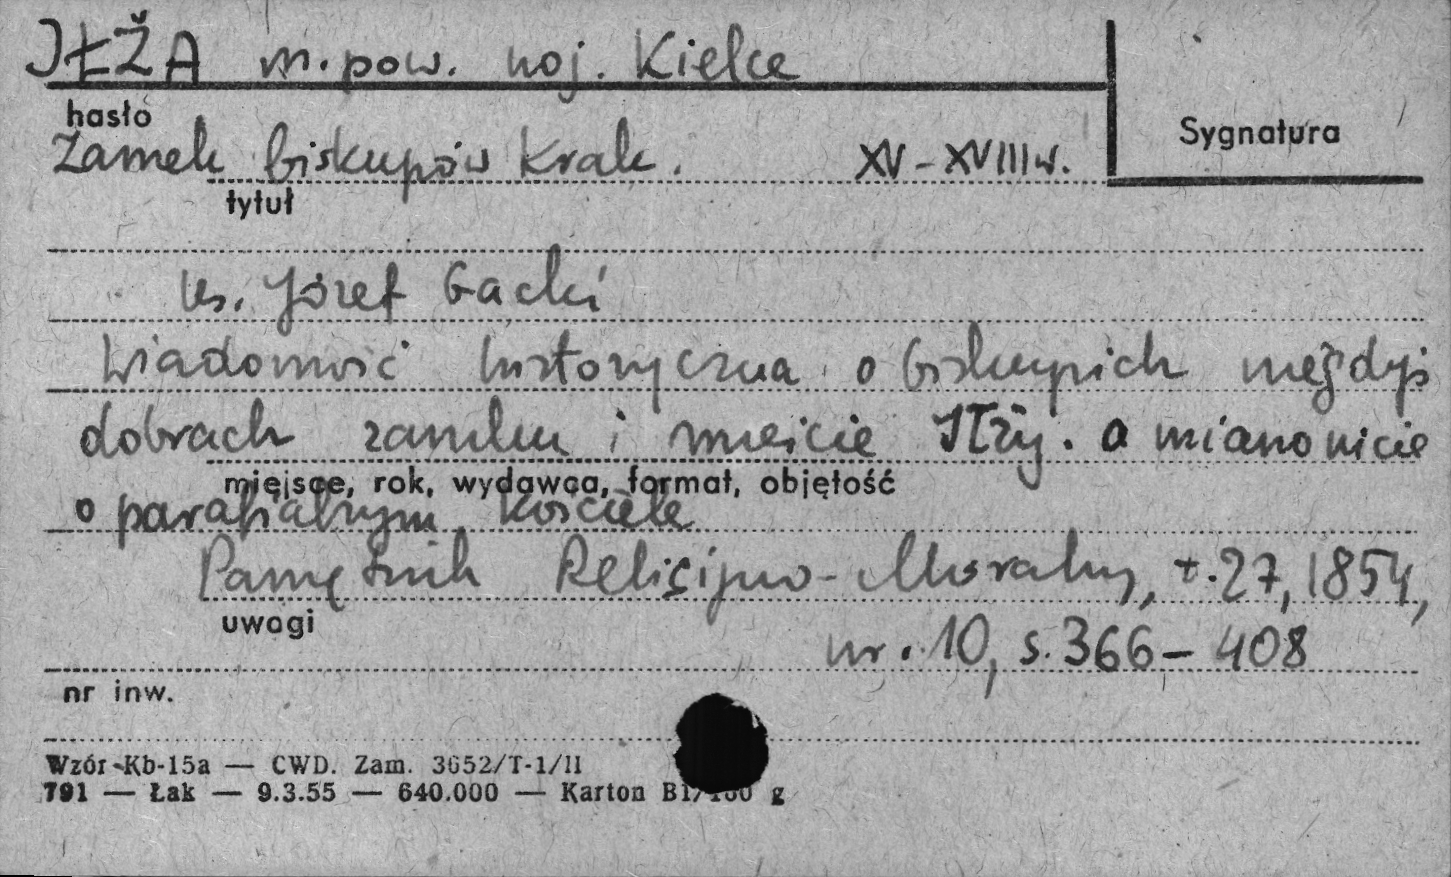 IŁŻA m. pow. woj. Kielce
hasło
Sygnatura
Zamek biskupów Krak. XV – XVIII w.
tytuł
ks. Józef Gacki
Wiadomość historyczna o biskupich niegdyś
dobrach zamku i mieście Iłży. a mianowicie
miejsce, rok, wydawca, format, objętość
o parafialnym kościele
Pamiętnik Religijno-Moralny, t. 27, 1854,
uwagi
nr. 10, s. 366 – 408
nr inw.
Wzór Kb-15a — CWD. Zam. 3652/T-1/II
791 — Łak — 9.3.55 — 640.000 — Karton g